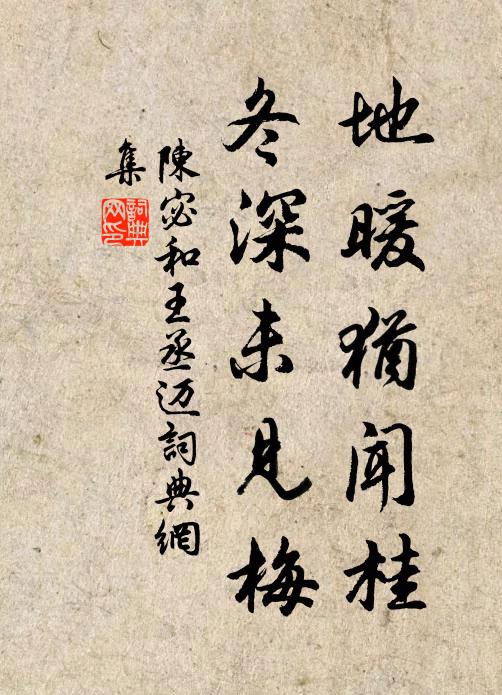 地暖猶聞桂
冬深未見梅
陳宓和王丞迈詞典網
集
詞典
网印